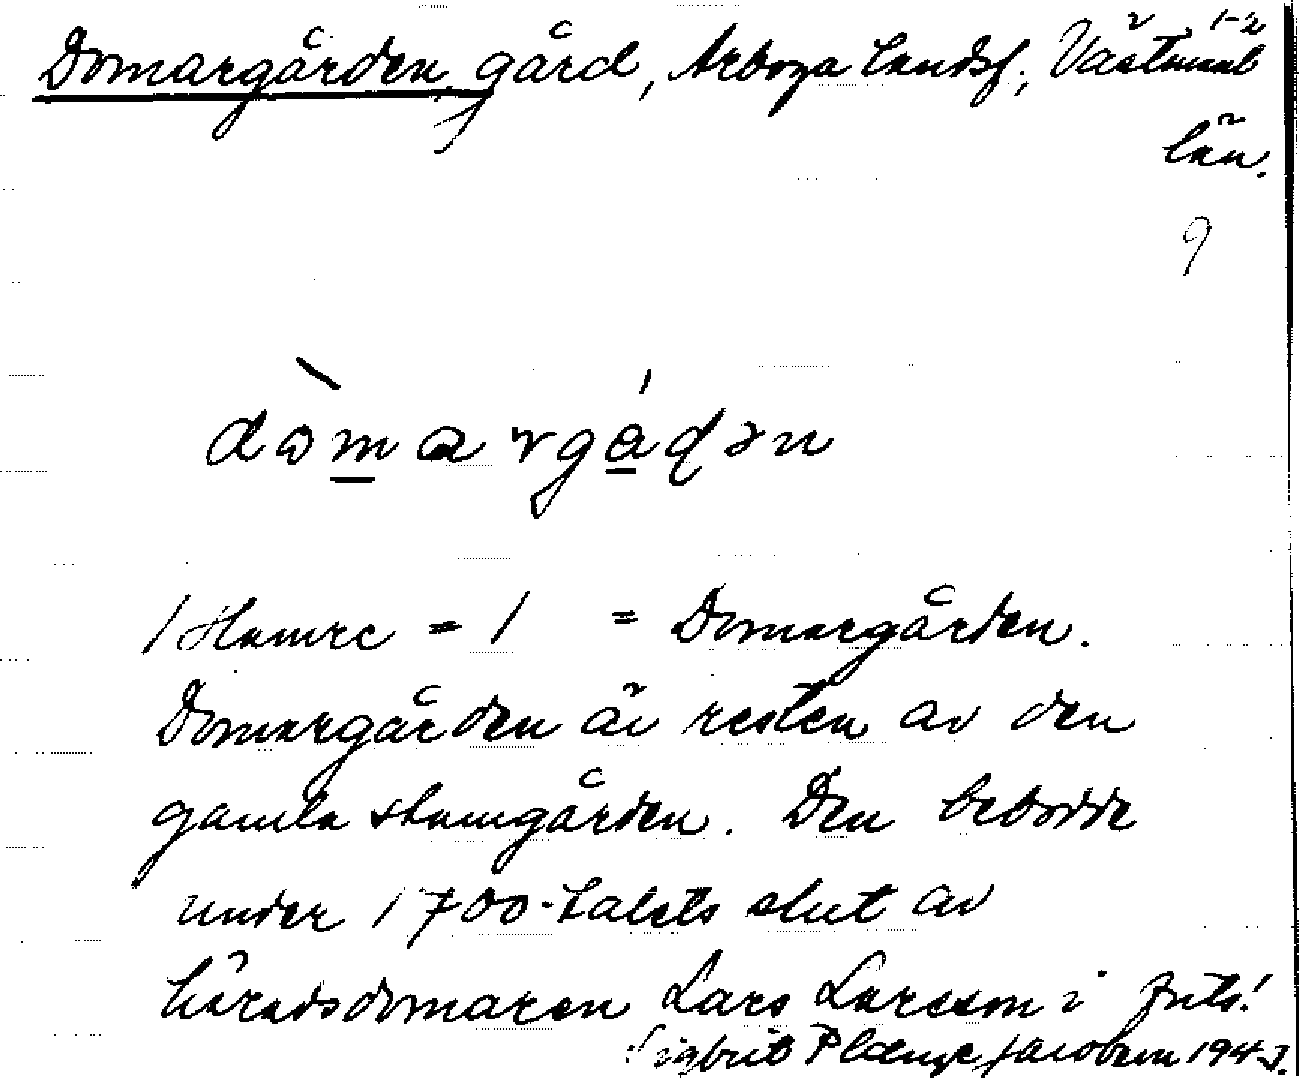 Domargården gård, Arboga landsf., Västmanl
1-2
län.
9
dòmargádən
/Hamre = / = Domargården.
Domargården är resten av den
gamla stamgården. Den bebodde
under 1700-talets slut av
häradsdomaren Lars Larsson i
Sigbrit Plænge Jacobson 194